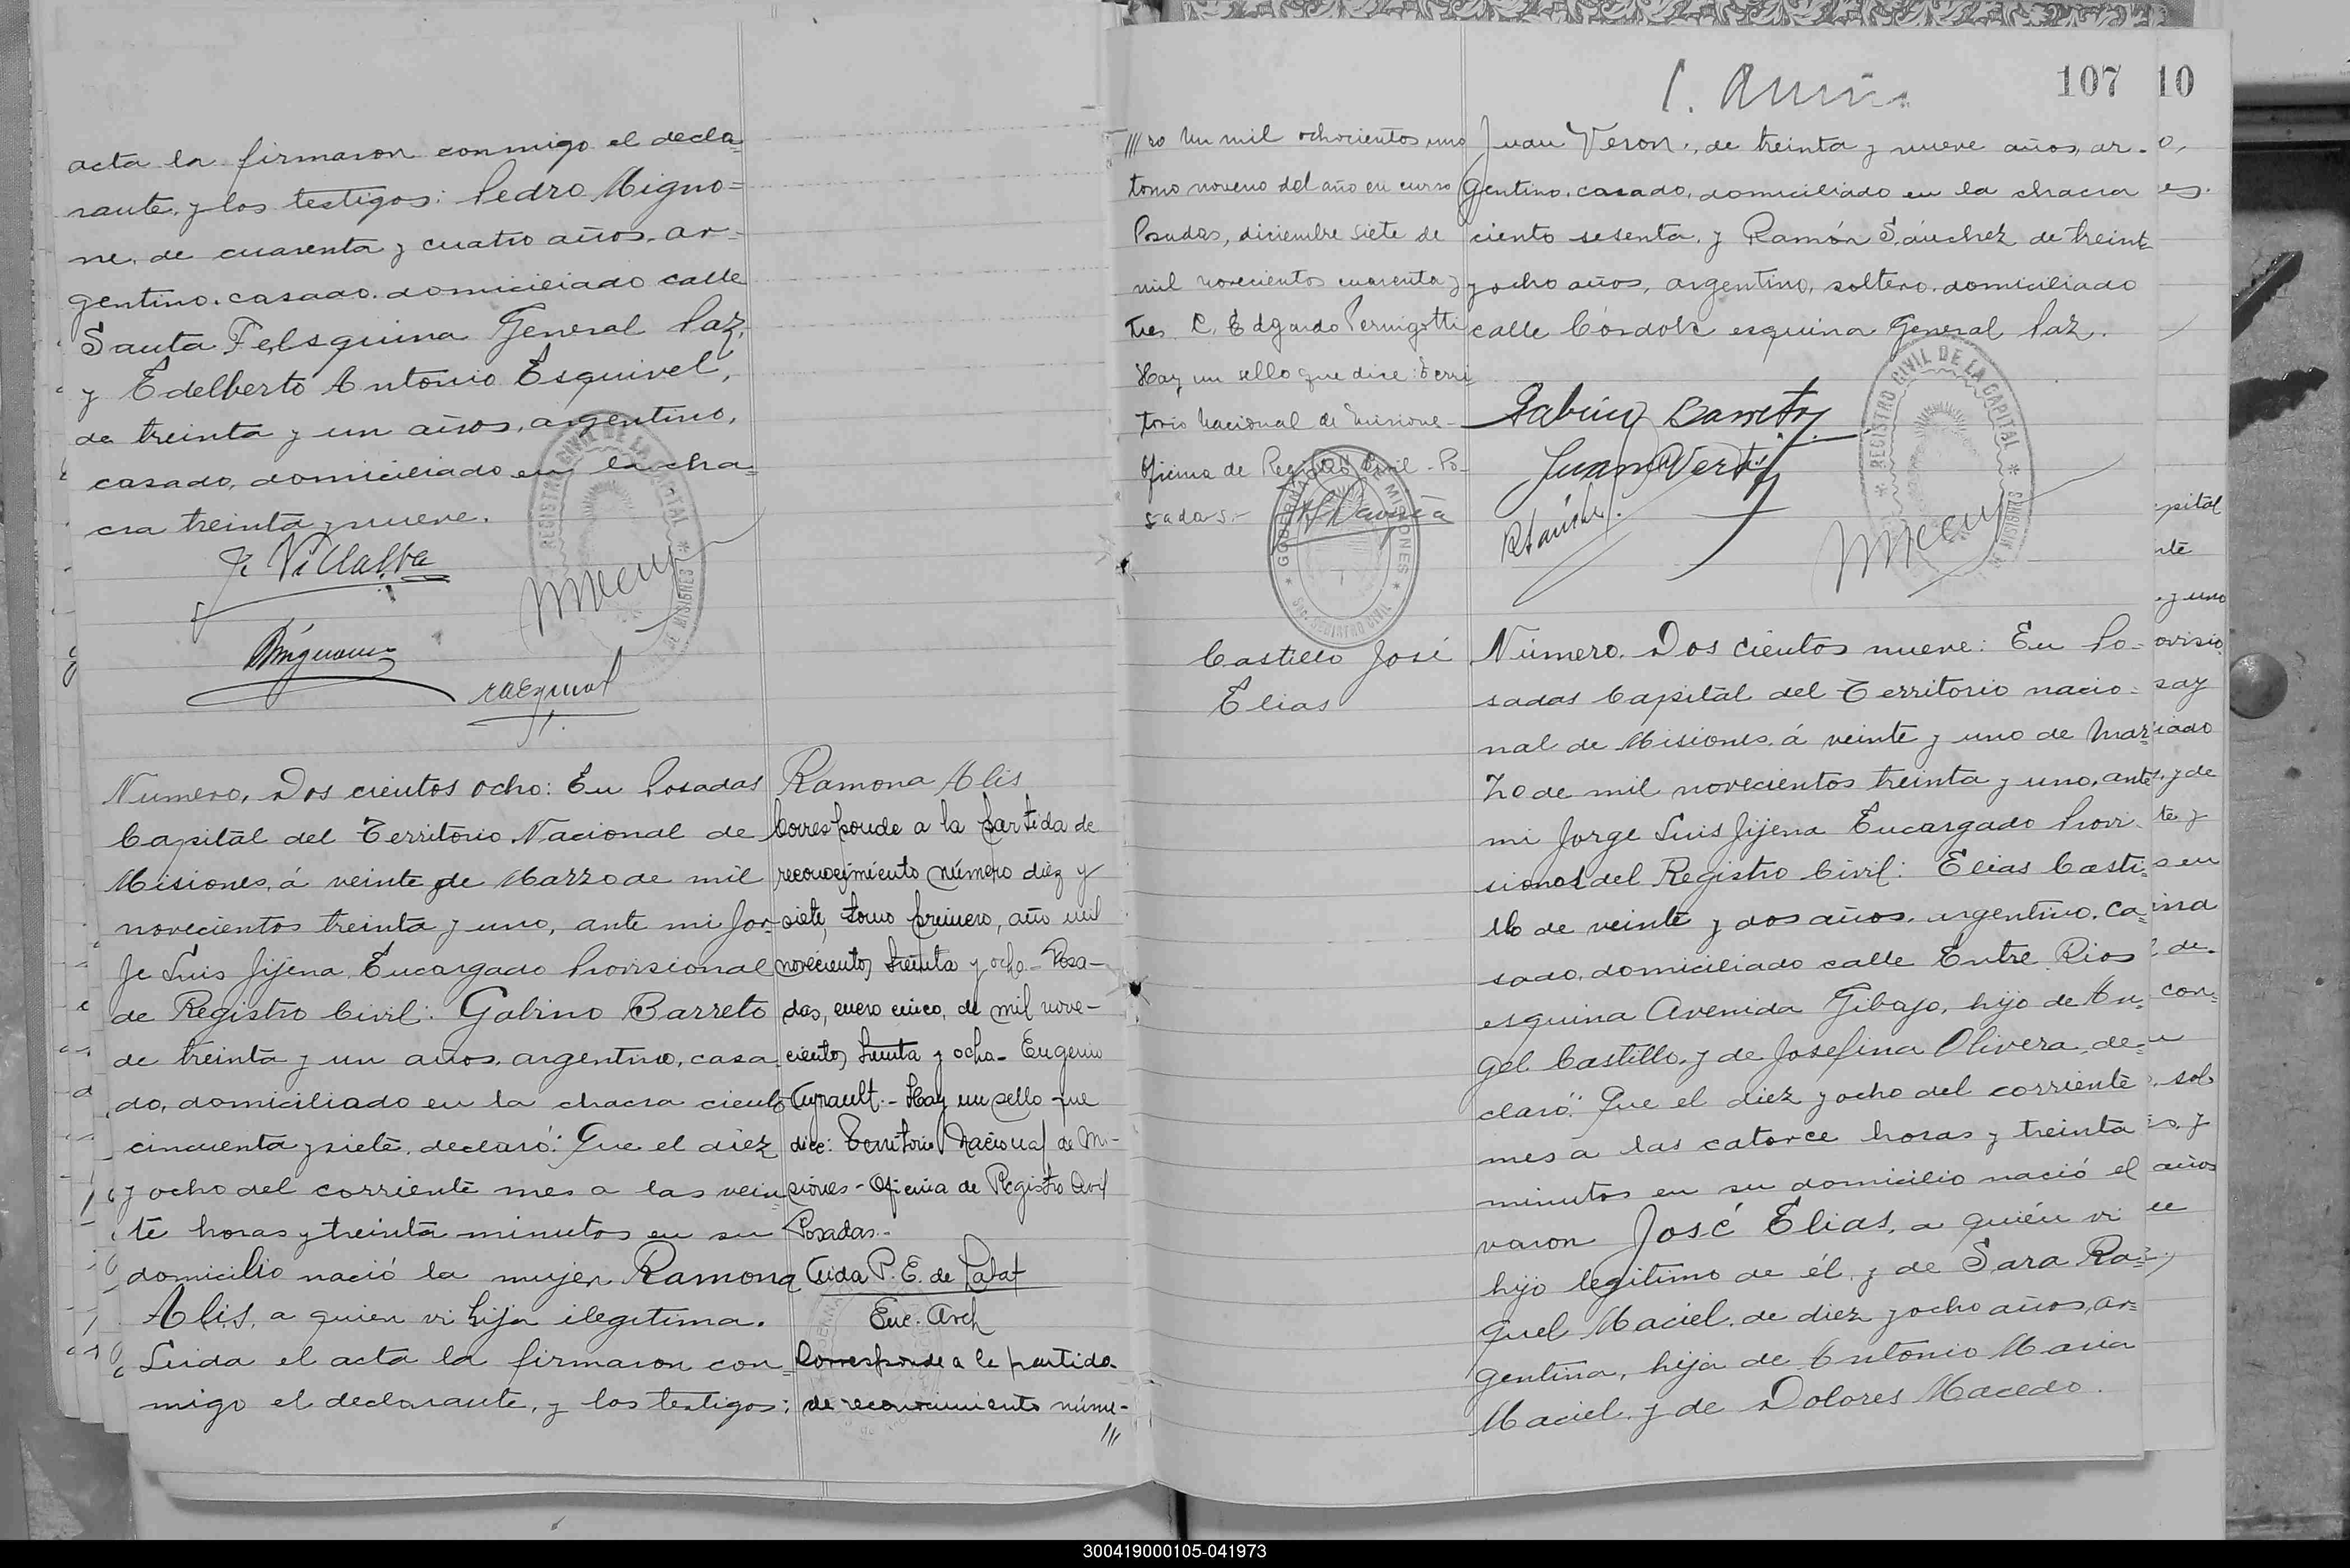 acta la firmaron conmigo el decla-
rante, y los testigos: Pedro Migno=
ne, de cuarenta y cuatro años, ar=
gentino, casado, domiciliado calle
Santa Fe esquina General Paz,
y Edelberto Antonio Esquivel,
de treinta y un años, argentino,
casado, domiciliado en la cha=
cra treinta y nueve.
REGISTRO CIVIL DE LA CAPITAL
J. Villalba
Número, Dos cientos ocho: En Posadas
Capital del Territorio Nacional de
Misiones, á veinte de Marzo de mil
novecientos treinta y uno, ante mi Jor-
ge Luis Jijena, Encargado Provisional
de Registro Civil: Gabino Barreto
de treinta y un años, argentino, casa-
do, domiciliado en la chacra ciento
cincuenta y siete, declaró: Que el diez
y ocho del corriente mes a las vein
te horas y treinta minutos en su
domicilio nació la mujer Ramona
Alis, a quien vi hija ilegitima.
Leida el acta la firmaron con=
migo el declarante, y los testigos:
Ramona Alis
Corresponde a la partida de
reconocimiento número diez y
siete, tomo primero, año mil
novecientos treinta y ocho - Posa-
das, enero cinco, de mil nove-
cientos treinta y ocho - Eugenio
- Hay un sello que
dice: Territorio Nacional de Mi-
siones - Oficina de Registro Civil
Posadas.-
P. E. de Labat
Enc. Arch
Corresponde a la partida
de reconocimiento núme-
///
107
10
/// ro un mil ochocientos uno
tomo noveno del año en curso
Posadas, diciembre siete de
mil novecientos cuarenta y
tres. C. Edgardo Pernigotti
Hay un sello que dice: Terri-
torio Nacional de Misione-
Oficina de Registro Civil - Po-
sadas.-
GOBERNACION DE MISIONES
REGISTRO CIVIL
Juan Veron, de treinta y nueve años, ar-
gentino, casado, domiciliado en la chacra
ciento sesenta, y Ramón Sánchez de treint-
y ocho años, argentino, soltero, domiciliado
calle Córdoba esquina General Paz.
REGISTRO CIVIL DE LA CAPITAL
Gabino Barreto
Castillo José
Elias
Número. Dos cientos nueve: En Po-
sadas Capital del Territorio nacio-
nal de Misiones, á veinte y uno de Mar-
zo de mil novecientos treinta y uno, ante
mi Jorge Luis Jijena Encargado Provi-
sional del Registro Civil: Elias Casti-
llo de veinte y dos años, argentino, ca=
sado, domiciliado calle Entre Rios
esquina Avenida Gibajo, hijo de An-
gel Castillo, y de Josefina Olivera, de=
claró: Que el diez y ocho del corriente
mes a las catorce horas y treinta
minutos en su domicilio nació el
varon José Elias, a quién vi
hijo legitimo de él, y de Sara Ra=
quel Maciel, de diez y ocho años, ar=
gentina, hija de Antonio Maria
Maciel, y de Dolores Macedo.
300419000105-041973